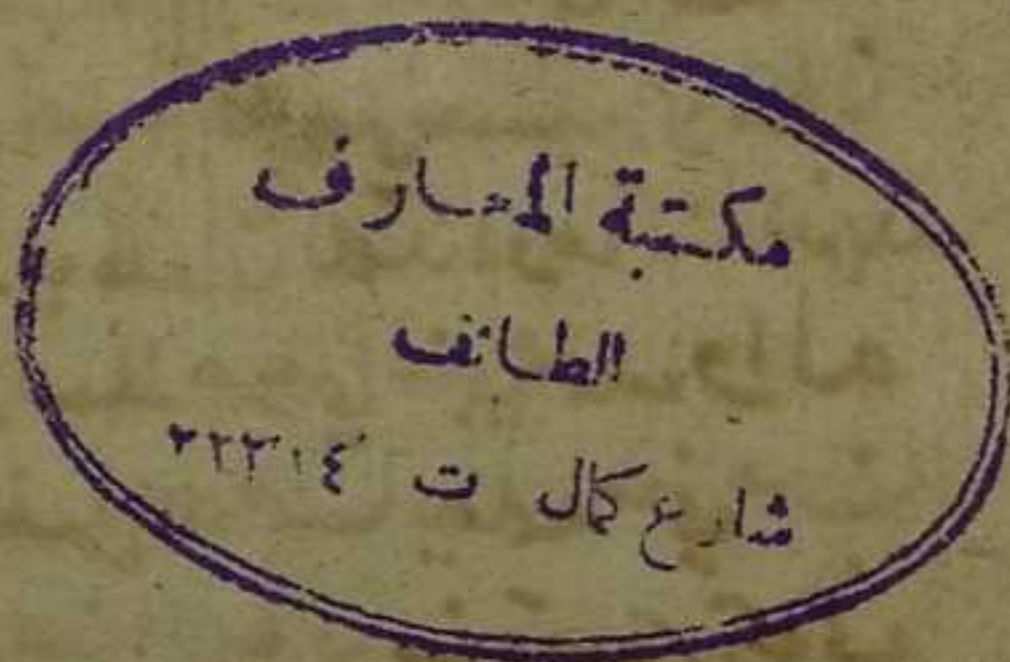 مكتبة المعارف
الطائف
شارع كمال ت